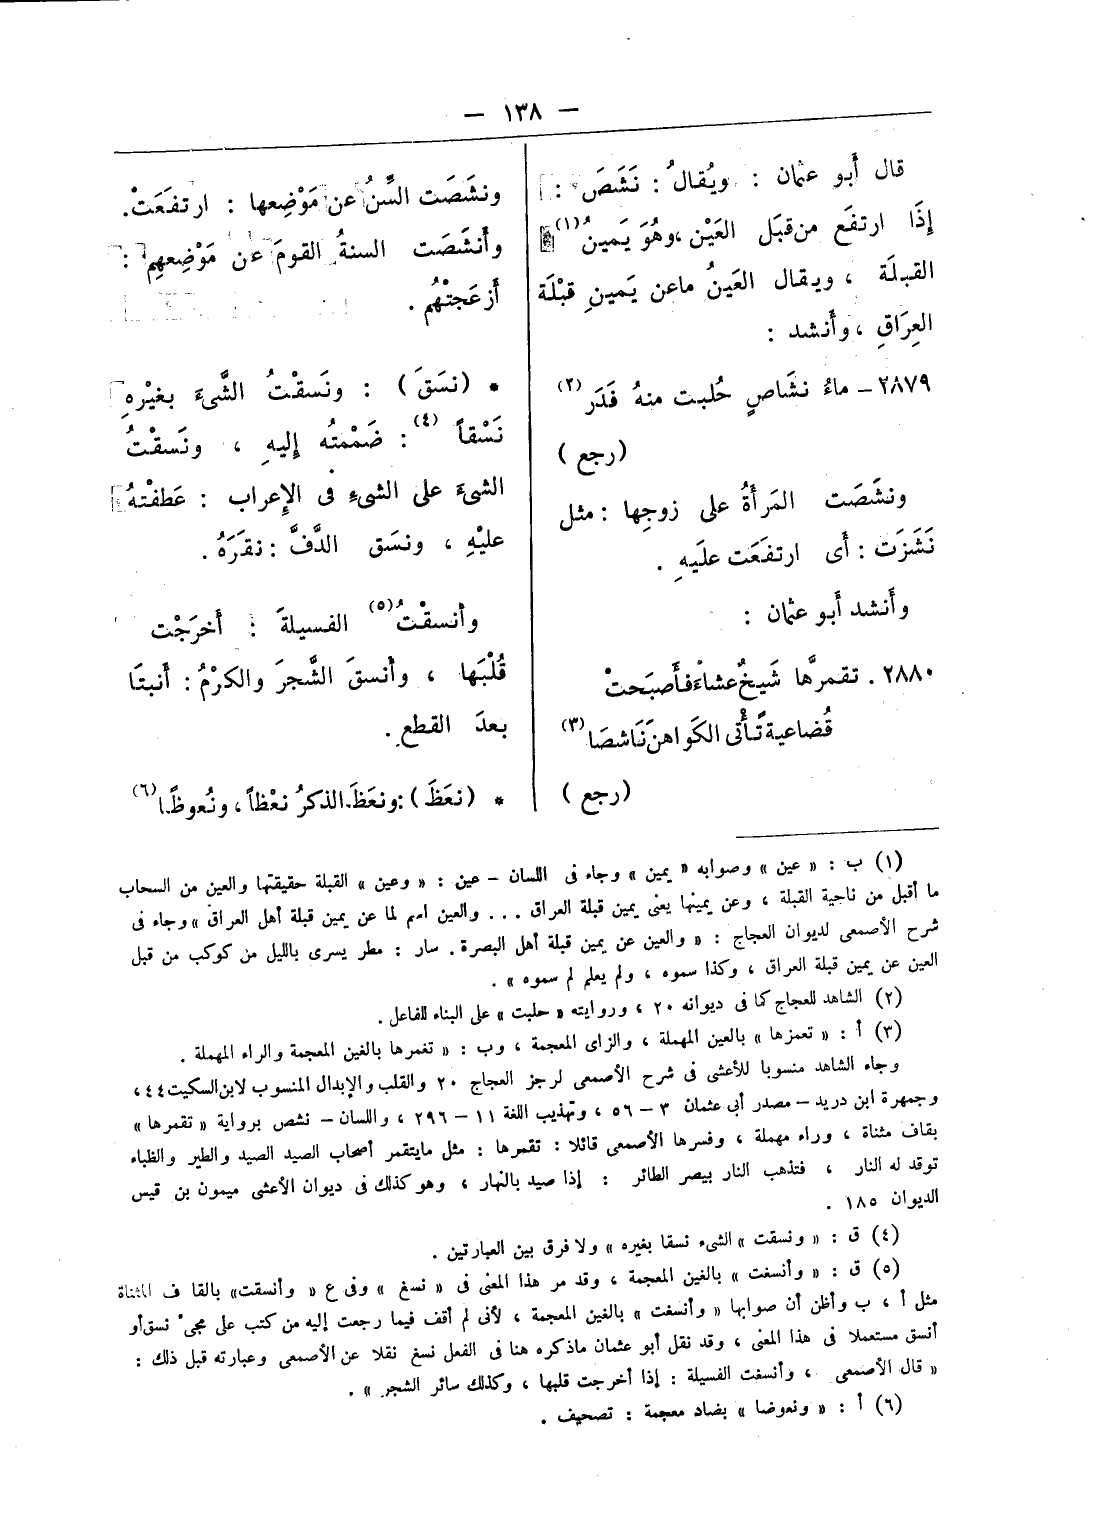 — ١٣٨ —
قال أَبو عثمان : ويُقالُ : نَشَصَ :
إِذَا ارتفَع من قبَل العَيْن ، وهُوَ يَمينُ (١)
القبلَة ، ويقال العَينُ ما عن يَمينِ قبْلَة
العِرَاقِ ، وأَنشد :
٢٨٧٩ – ماءُ نشَاصٍ حُلبت منهُ فَدَر (٢)
(رجع )
ونشَصَت المَرأَةُ على زوجِها : مثل
نَشَزَت : أَى ارتفَعَت علَيهِ .
وأَنشد أَبو عثمان :
٢٨٨٠ . تقمرَّها شَيخٌ عشاءً فأَصبَحتْ
قُضاعية تَأْتى الكَواهن نَاشصَا (٣)
(رجع )
ونشَصَت السِّنُ عن مَوْضِعها : ارتفَعَتْ.
وأَنشَصَت السنةُ القومَ عن مَوْضِعهِم :
أَزعَجتْهُم .
* (نسَقَ ) : ونَسقْتُ الشَّىءَ بغيْرهِ
نَسْقاً (٤) : ضَمْمتُه إِليهِ ، ونَسقْتُ
الشىءَ على الشىءِ فى الإِعراب : عَطفْتهُ
عليْهِ ، ونسَق الدَّفَّ : نقرَهُ .
وأَنسقْتُ (٥) الفسيلةَ : أَخرَجْت
قُلْبَها ، وأَنسقَ الشَّجرَ والكرْمُ : أَنبتَا
بعدَ القطع .
* (نعَظَ ) : ونعَظَ الذكرُ نعْظاً ، ونُعوظًا (٦)
(١) ب : « عين » وصوابه « يمين » وجاء فى اللسان – عين : « وعين » القبلة حقيقتها والعين من السحاب
ما أقبل من ناحية القبلة ، وعن يمينها يعنى يمين قبلة العراق . . . والعين اسم لما عن يمين قبلة أهل العراق » وجاء فى
شرح الأصمعى لديوان العجاج : « والعين عن يمين قبلة أهل البصرة . سار : مطر يسرى بالليل من كوكب من قبل
العين عن يمين قبلة العراق ، وكذا سموه ، ولم يعلم لم سموه » .
(٢) الشاهد للعجاج كما فى ديوانه ٢٠ ، وروايته « حلبت » على البناء للفاعل .
(٣) أ : « تعمزها » بالعين المهملة ، والزاى المعجمة ، وب : « تغمرها بالغين المعجمة والراء المهملة .
وجاء الشاهد منسوبا للأعشى فى شرح الأصمعى لرجز العجاج ٢٠ والقلب والإبدال المنسوب لابن السكيت ٤٤ ،
وجمهرة ابن دريد – مصدر أبى عثمان ٣ – ٥٦ ، وتهذيب اللغة ١١ – ٢٩٦ ، واللسان – نشص برواية « تقمرها »
بقاف مثناة ، وراء مهملة ، وفسرها الأصمعى قائلا : تقمرها : مثل ما يتقمر أصحاب الصيد الصيد والطير والظباء
توقد له النار ، فتذهب النار بيصر الطائر : إذا صيد بالنهار ، وهو كذلك فى ديوان الأعشى ميمون بن قيس
الديوان ١٨٥ .
(٤) ق : « ونسقت » الشىء نسقا بغيره » ولا فرق بين العبارتين .
(٥) ق : « وأنسغت » بالغين المعجمة ، وقد مر هذا المعنى فى « نسغ » وفى ع « وأنسقت» بالقاف المثناة
مثل أ ، ب وأظن أن صوابها « وأنسغت » بالغين المعجمة ، لأنى لم أقف فيما رجعت إليه من كتب على مجىء نسق أو
أنسق مستعملا فى هذا المعنى ، وقد نقل أبو عثمان ما ذكره هنا فى الفعل نسغ نقلا عن الأصمعى وعبارته قبل ذلك :
« قال الأصمعى ، وأنسغت الفسيلة : إذا أخرجت قلبها ، وكذلك سائر الشجر » .
(٦) أ : « ونعوضا » بضاد معجمة : تصحيف .